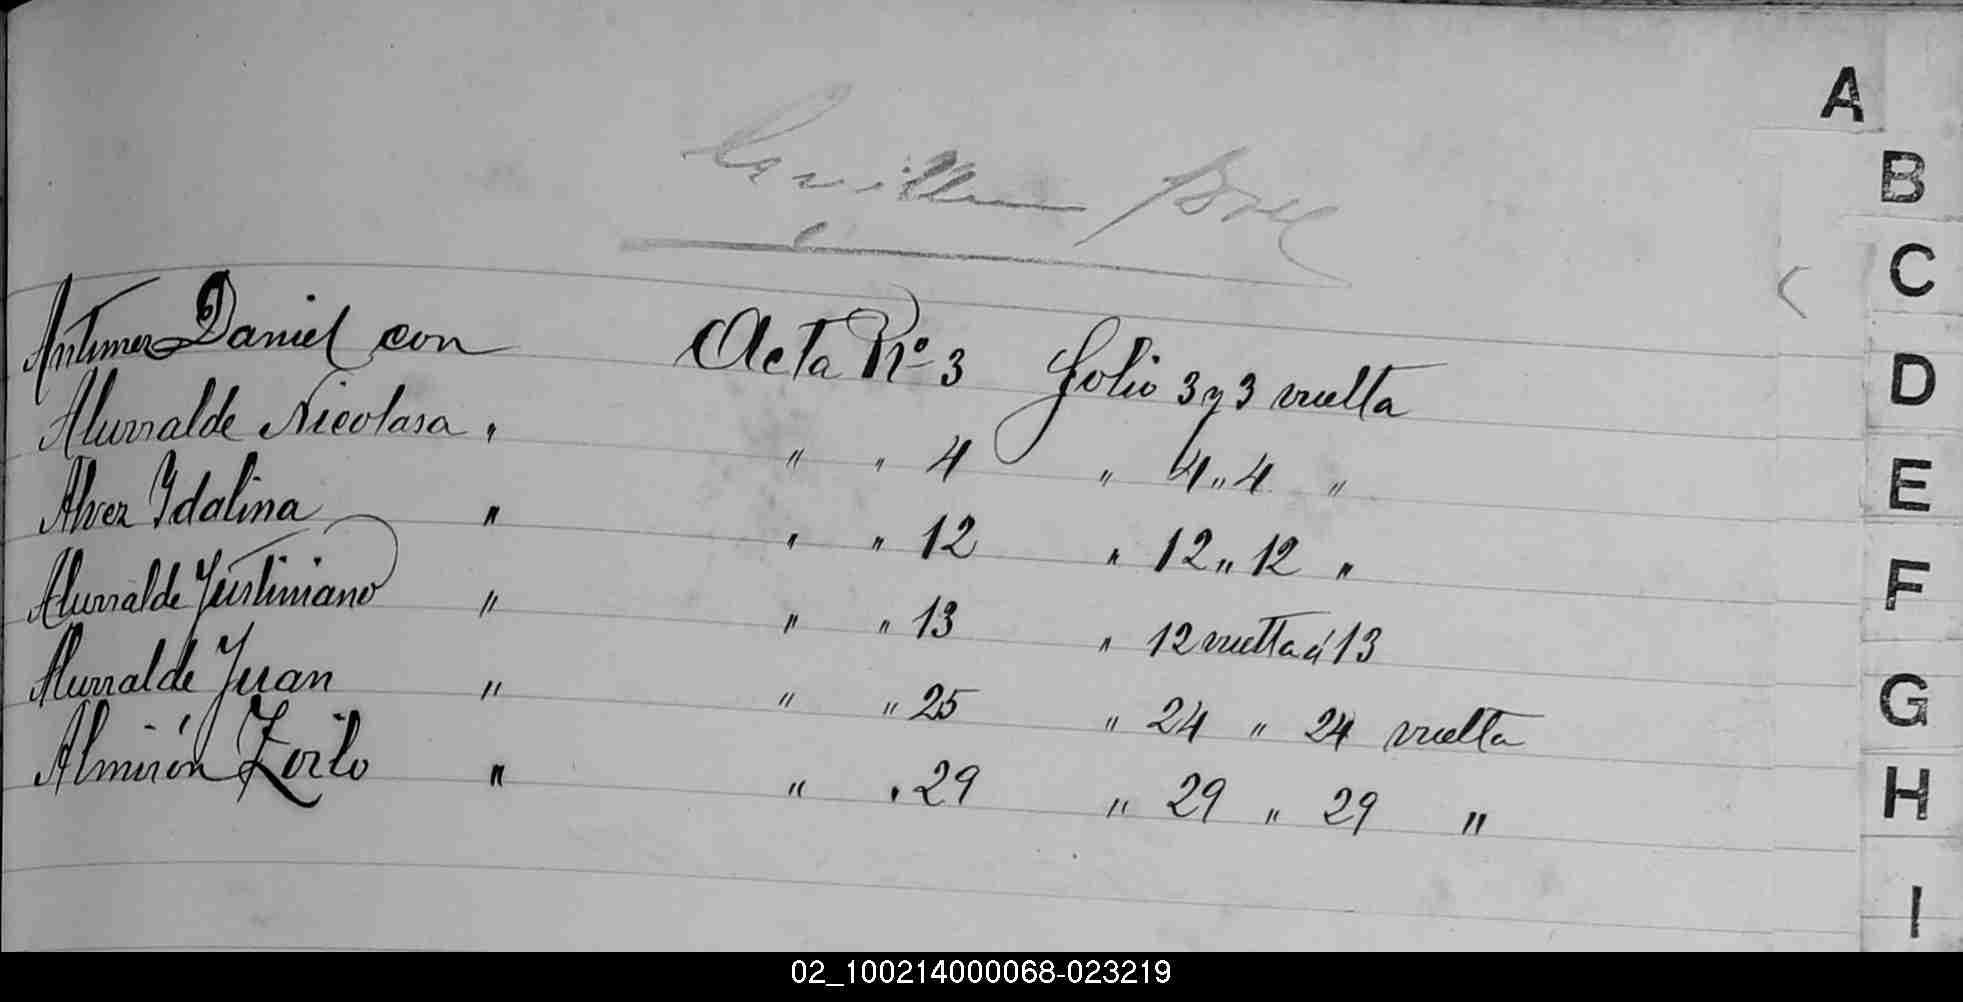 A
B
C
D
E
F
G
H
I
Daniel con Acta Nº 3 folio 3 y 3 vuelta
Alurralde Nicolasa " " " 4 " 4 " 4 "
Alvez Idalina " " " 12 " 12 " 12 "
Alurralde Justiniano " " " 13 " 12 vuelta á 13
Alurralde Juan " " " 25 " 24 " 24 vuelta
Almirón Zoilo " " " 29 " 29 " 29 "
02_100214000068-023219